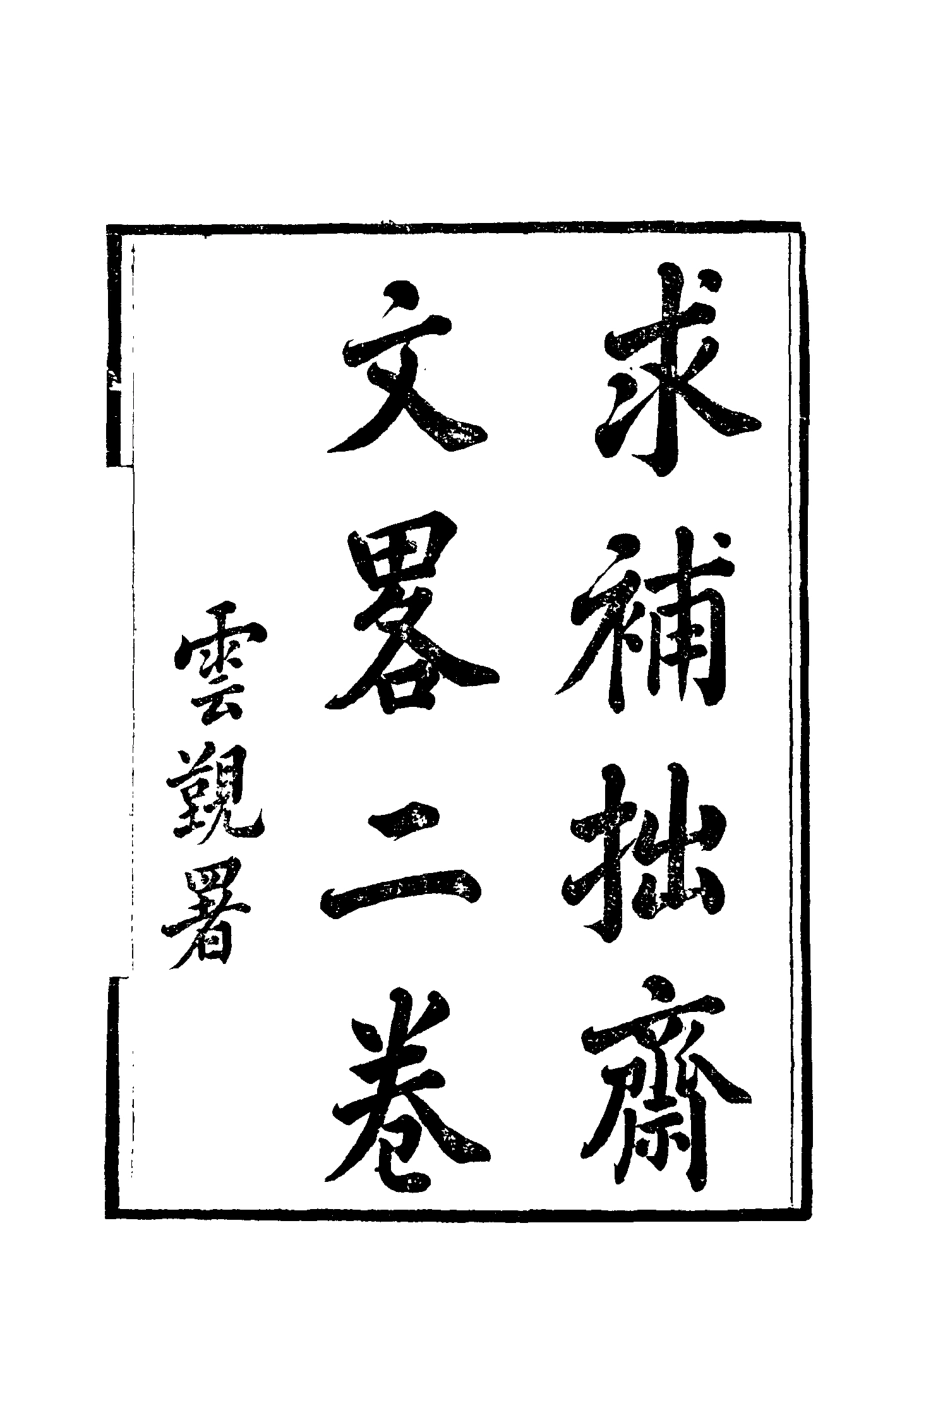 求補拙齋
文畧二卷
雲覲署